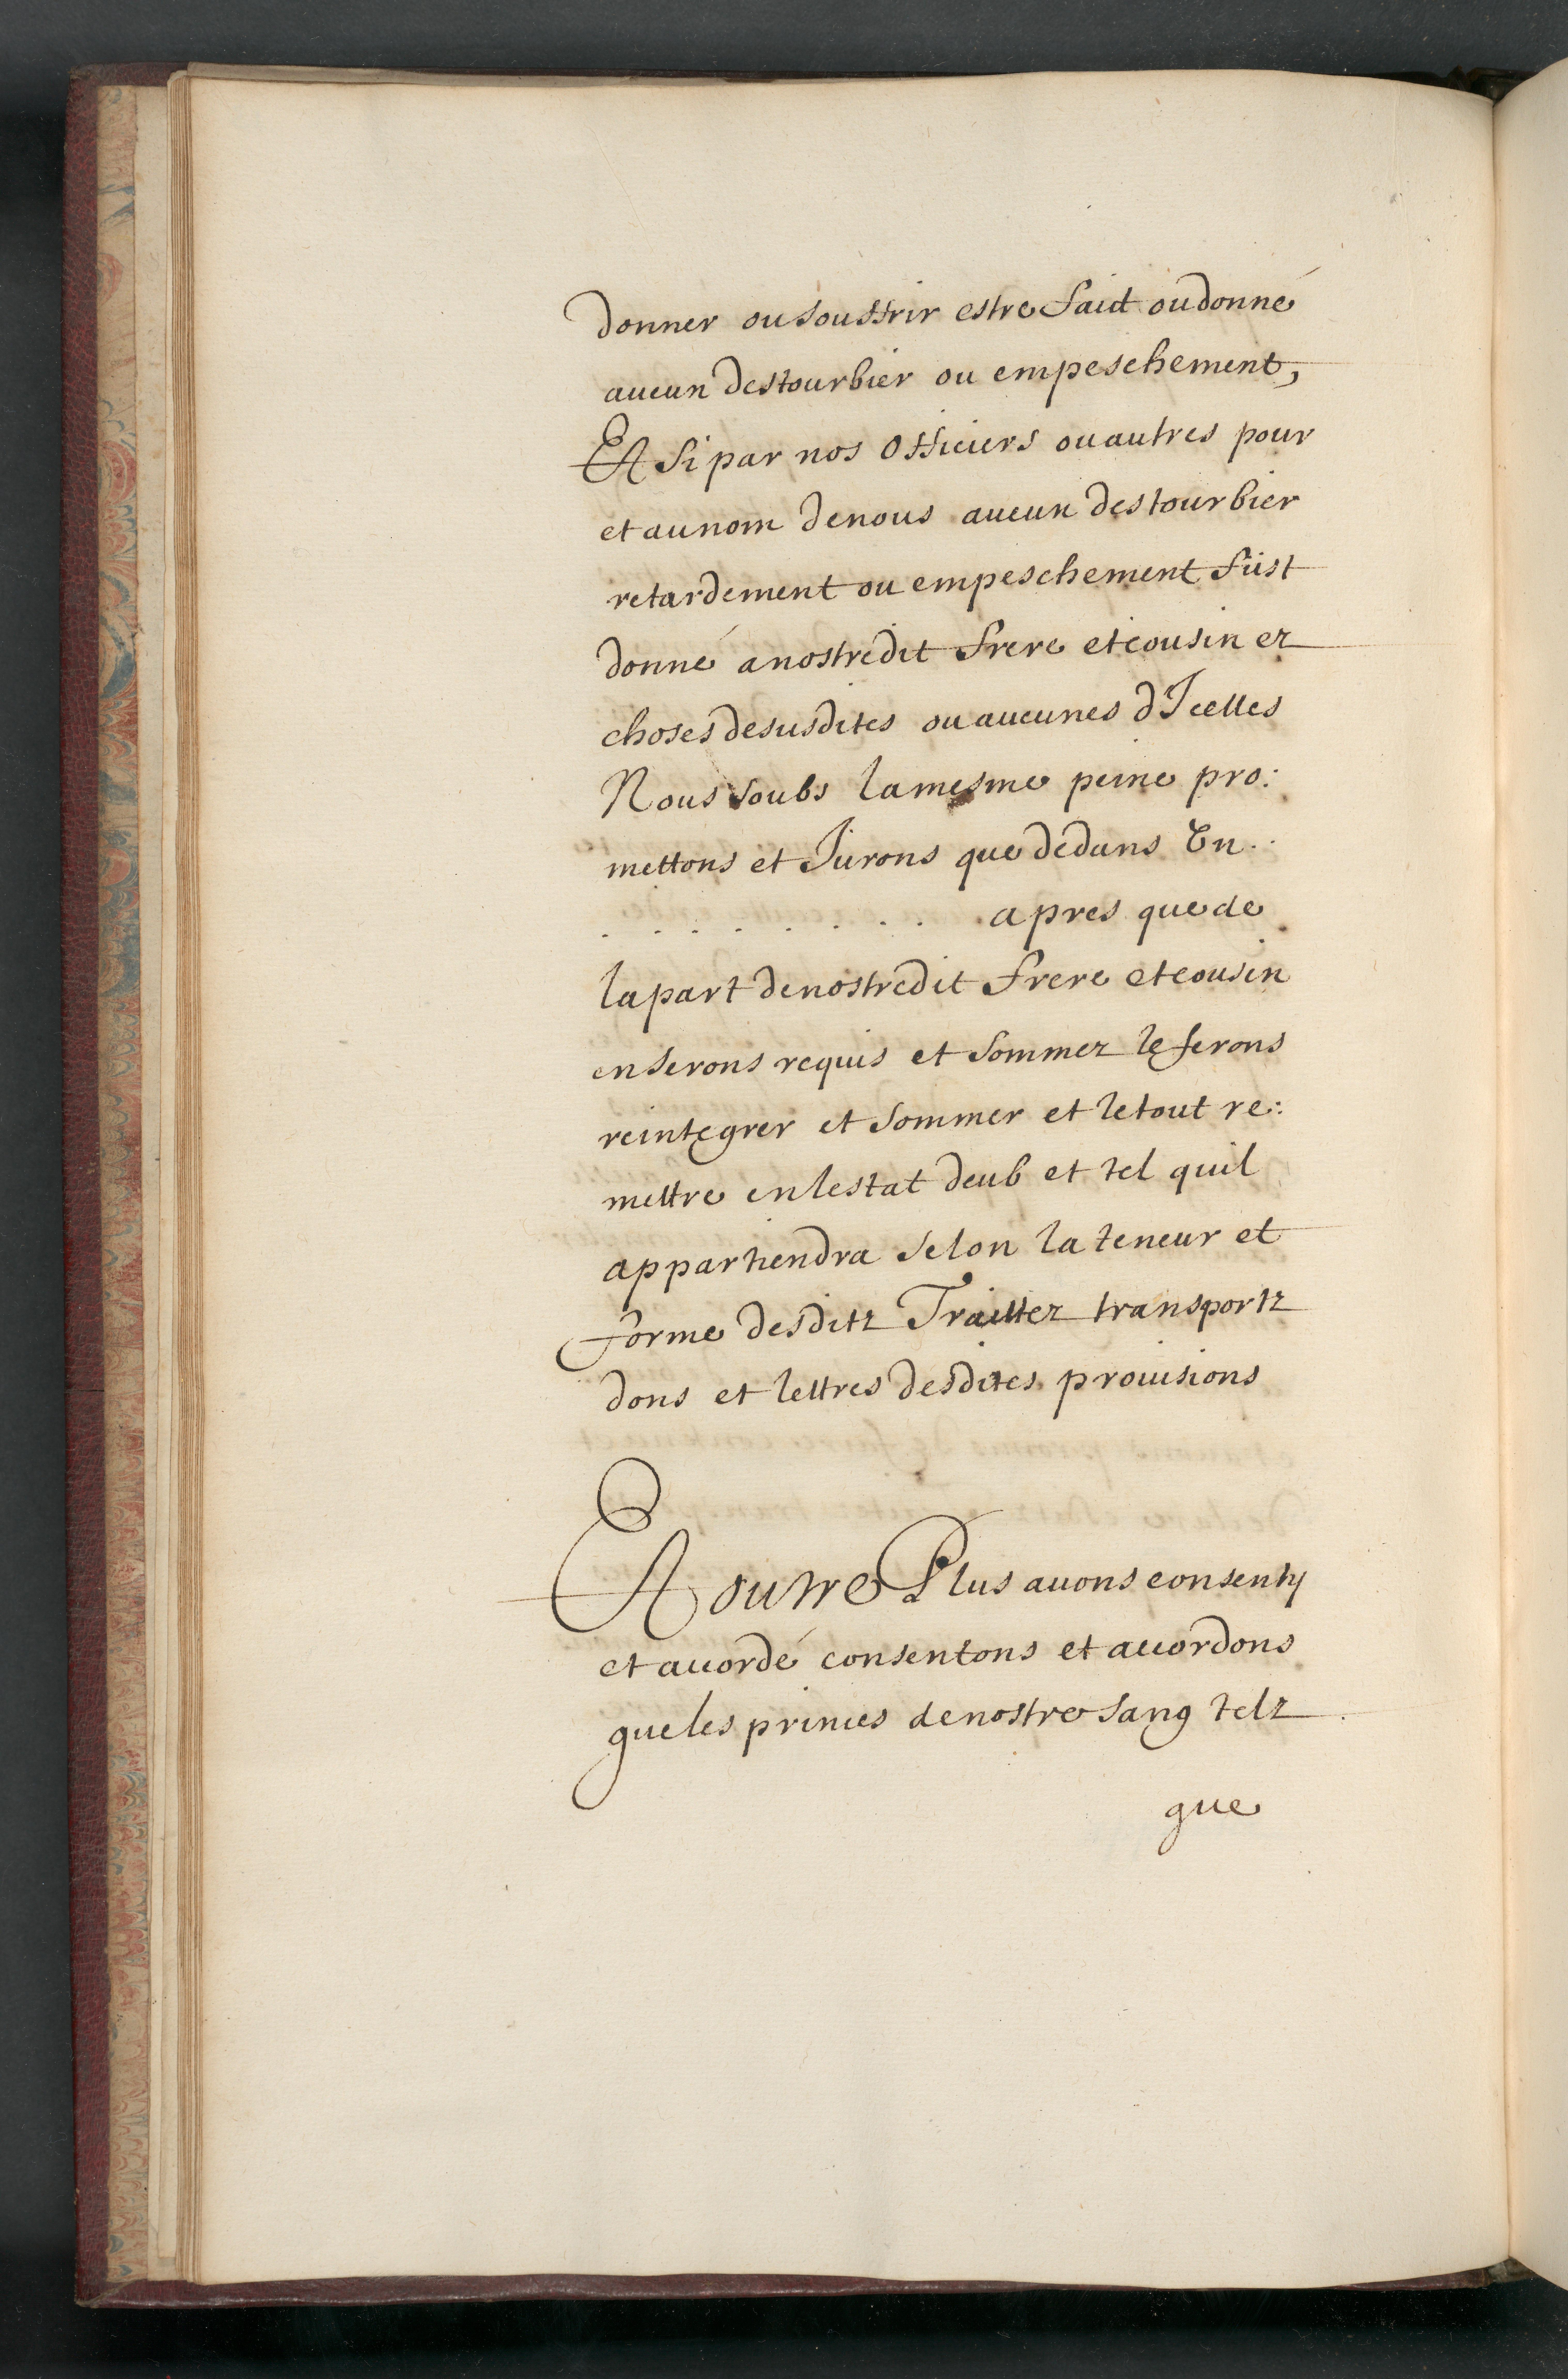 donner ou souffrir estre faict ou donné
aucun destourbier ou empeschement,
Et si par nos officiers ou autres pour
et au nom de nous aucun destourbier
retardement ou empeschement fust
donné a nostredit frere et cousin ez
choses desusdites ou aucunes d'Icelles
Nous soubs la mesme peine pro:
mettons et Jurons que dedans Un . .
. . . . . . . . apres que de
la part de nostredit frere et cousin
en serons requis et sommez le ferons
reintegrer et sommer et le tout re:
mettre en lestat deub et tel quil
appartiendra selon la teneur et
forme desditz Traittez transportz
dons et lettres desdites prouisions
Et outre Plus auons consenty
et accordé consentons et accordons
que les princes de nostre sang telz
que